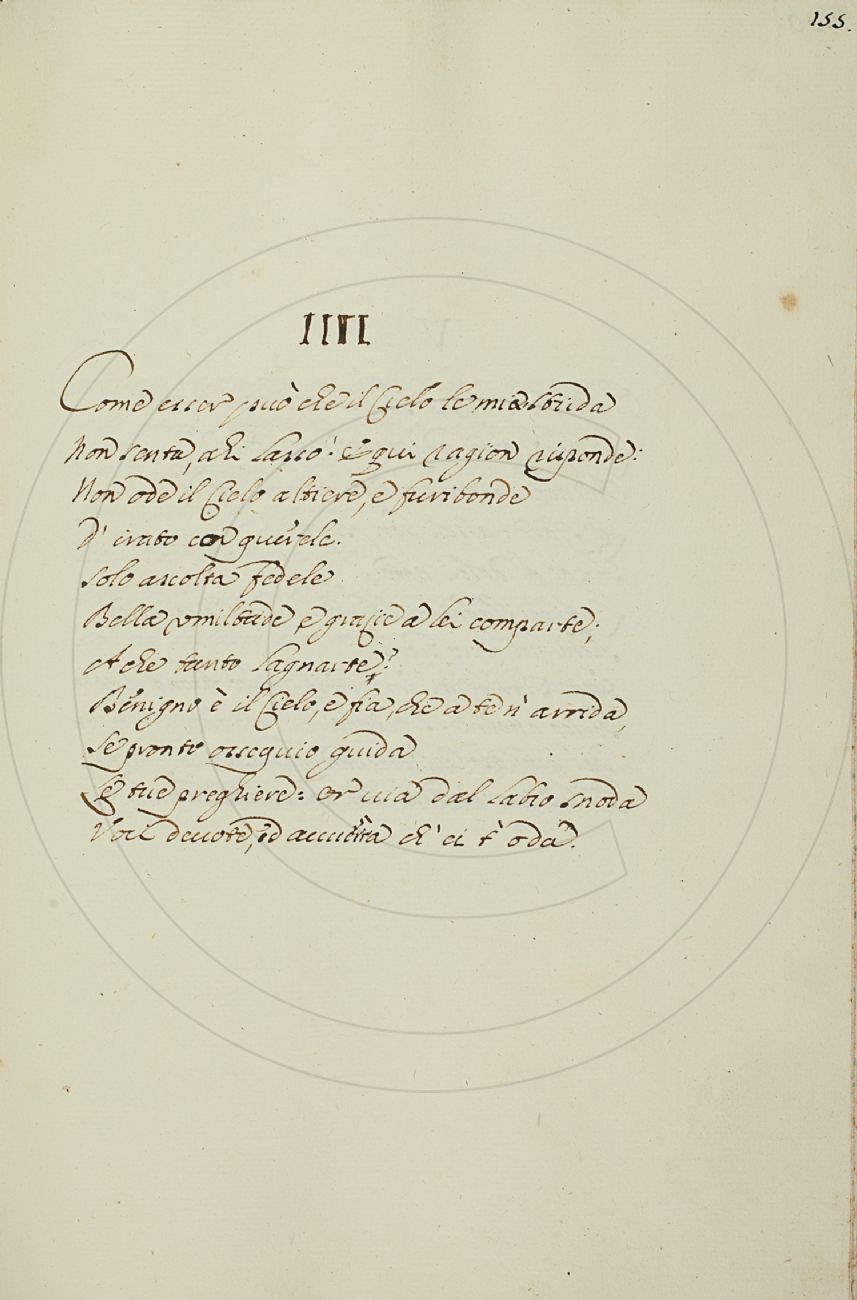 155.
IIII
Come esser può che il Cielo le mie strida
Non senta, ahi lasso! E qui ragion risponde:
Non ode il Cielo altiere, e furibonde
D' irato cor querele.
Solo ascolta fedele
Bella vmiltade, e grazie a lei comparte;
A che tanto lagnarte?
Benigno è il Cielo, e fia, che a te n' arrida,
Se pronto ossequio guida
Le tue preghiere: or via dal labro snoda
Voci devote, ed ch' ei t' oda.